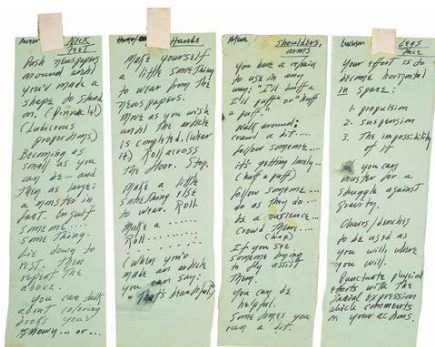 NECK
FEET
Push newspapers
around until
you've made a
shape to stand
on. (
Ludicrous
proportions)
Becoming as
small as you
can be — and
then as large:
a monster in
fact. Insult
someone...
Something.
Lie down to
rest. Then
repeat the
above.
You can talk
about coloring
books you've
known... or...
Hands
Make yourself
a little something
to wear from the
newspapers.
Move as you wish
until the article
is completed. (wear
it) Roll across
the floor. Stop.
Make a little
something else
to wear. Roll
Make a .....
Roll........
(When you've
made an article
you can say:
"That's beautiful")
shoulders,
arms
You have a refrain
to use in any
way: "I'll huff &
I'll puff" or "huff
& puff".
Walk around;
crawl a bit....
follow someone...
it's getting lonely...
(huff & puff)
follow someone...
do as they do...
be a nuisance...
crowd them...
If you see
someone trying
to fly assist
them.
You can be
helpful.
Sometimes you
run a bit.
LEGS
FACE
Your effort is to
become horizontal
in space:
1. propulsion
2. suspension
3. The impossibility
of it
you can
muster for a
struggle against
gravity.
Chairs/benches
to be used as
you will, where
you will.
Punctuate physical
efforts with the
facial expression
which comments
on your actions.